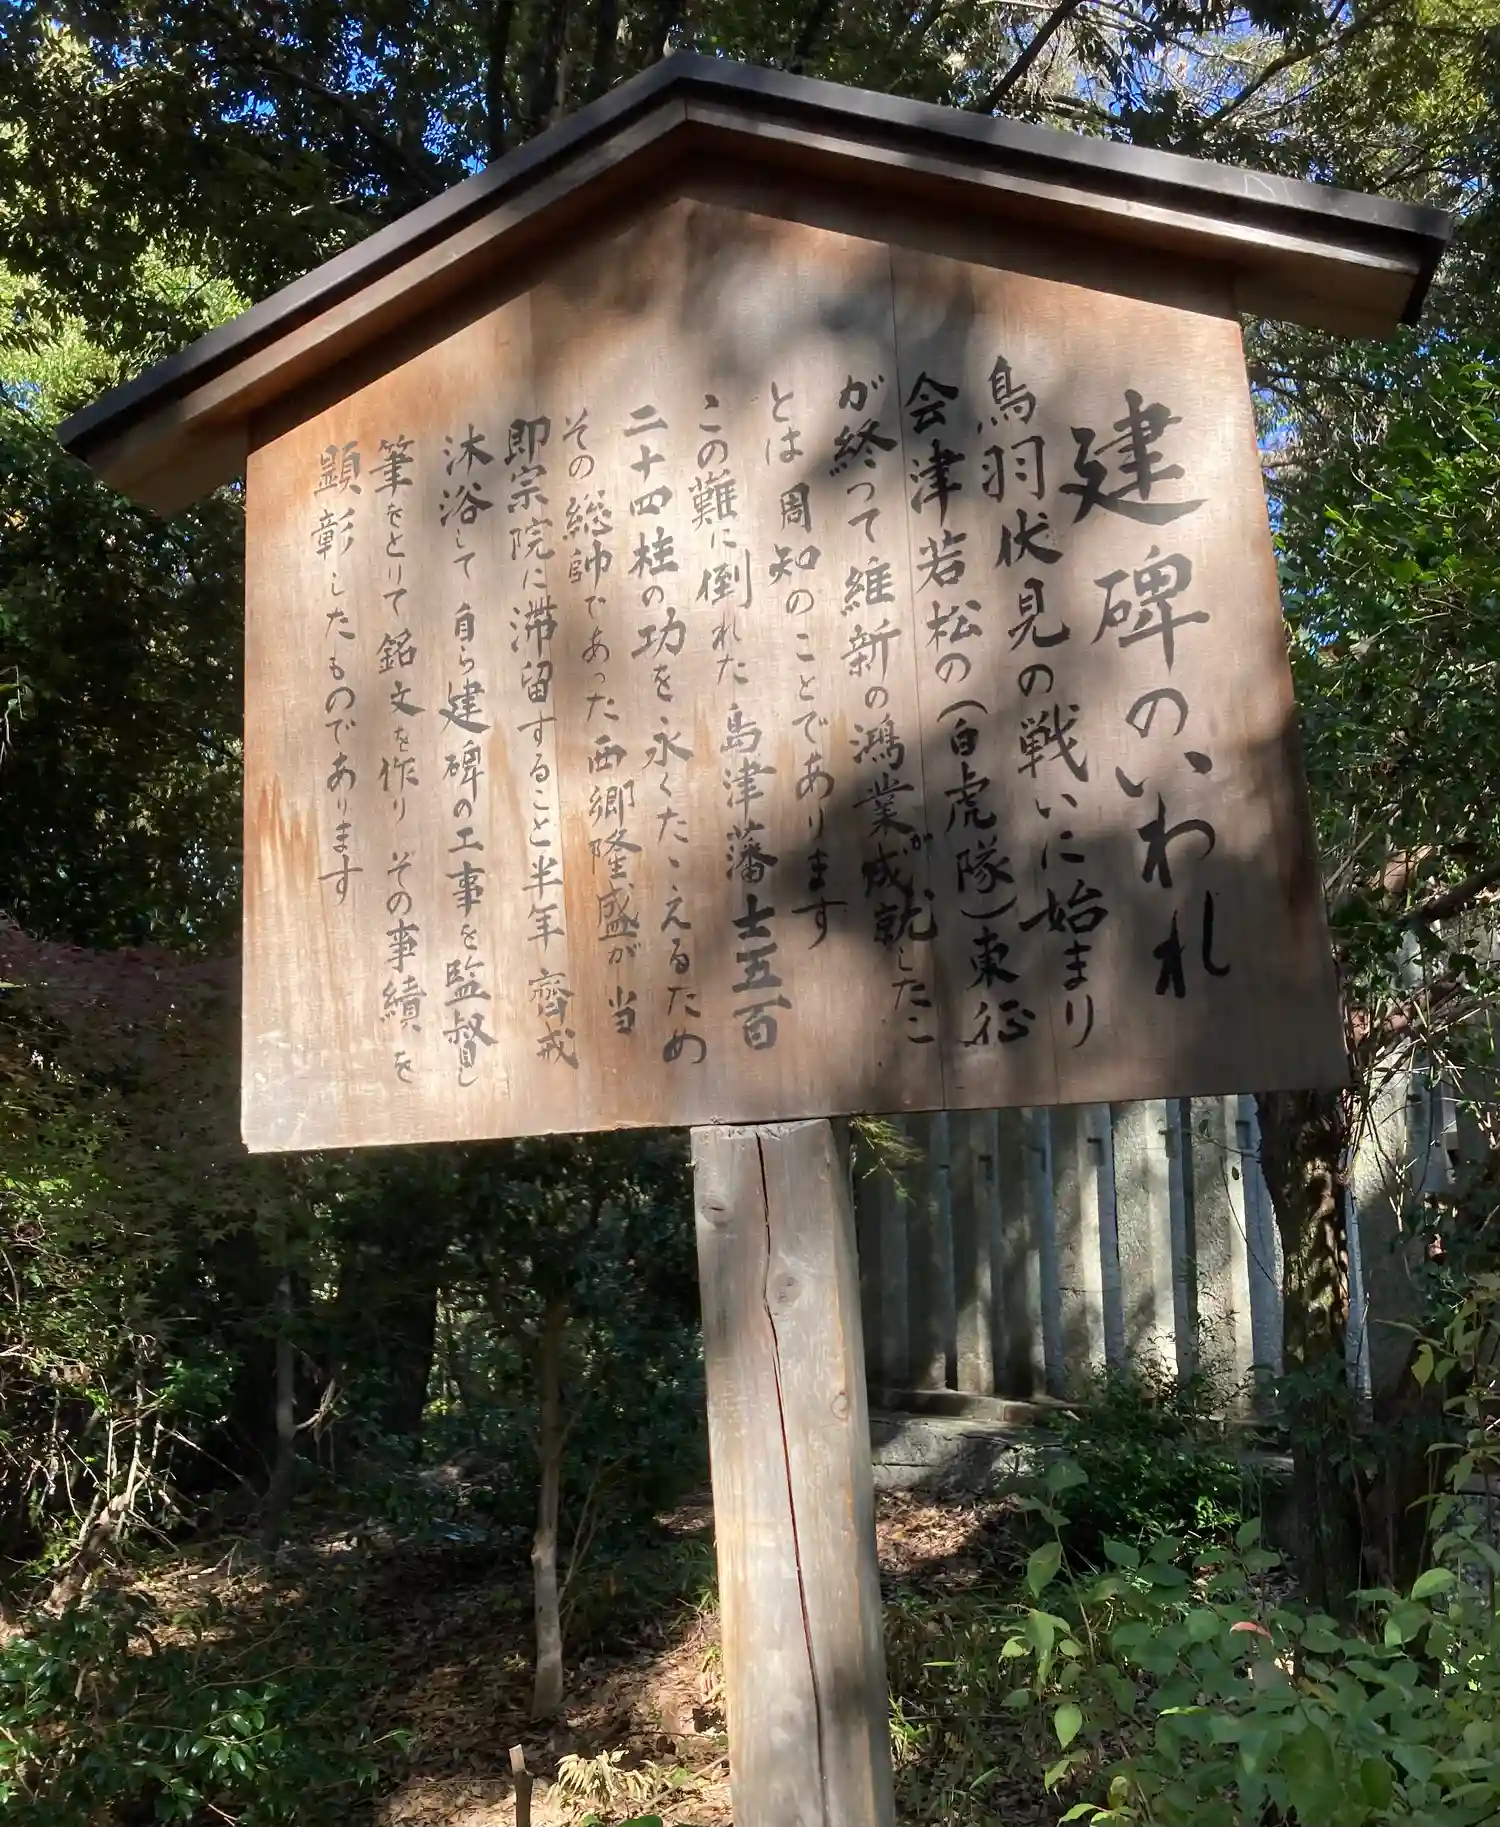 建碑のいわれ
鳥羽伏見の戦いに始まり
会津若松の(白虎隊)東征
が終って維新の鴻業が成就したこ
とは周知のことであります
この難に倒れた島津藩士五百
二十四柱の功を永くたゝえるため
その総帥であった西郷隆盛が当
即宗院に滞留すること半年 齊戒
沐浴して 自ら建碑の工事を監督し
筆をとりて銘文を作り その事績を
顕彰したものであります